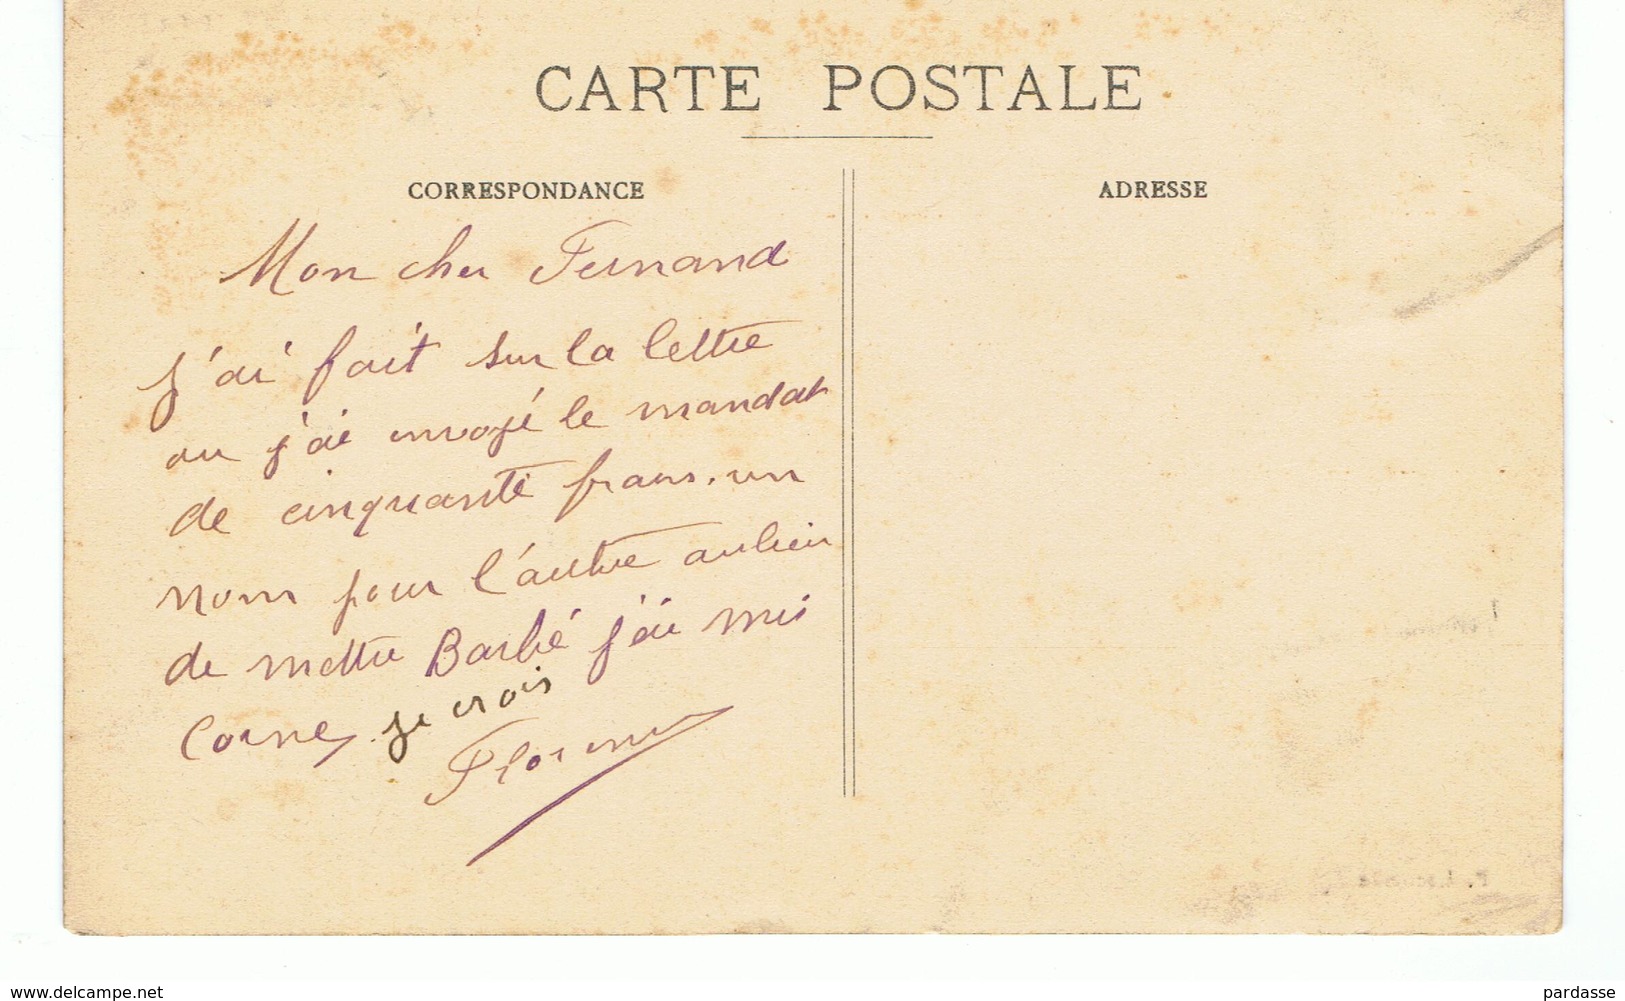 CARTE POSTALE
CORRESPONDANCE
ADRESSE
Mon cher Fernand
j'ai fait sur la lettre
ou j'ai envoyé le mandat
de cinquante frans. un
nom pour l'autre aulieu
de mettre Barbé j'ai mis
Corne je crois
www.delcampe.net
pardasse